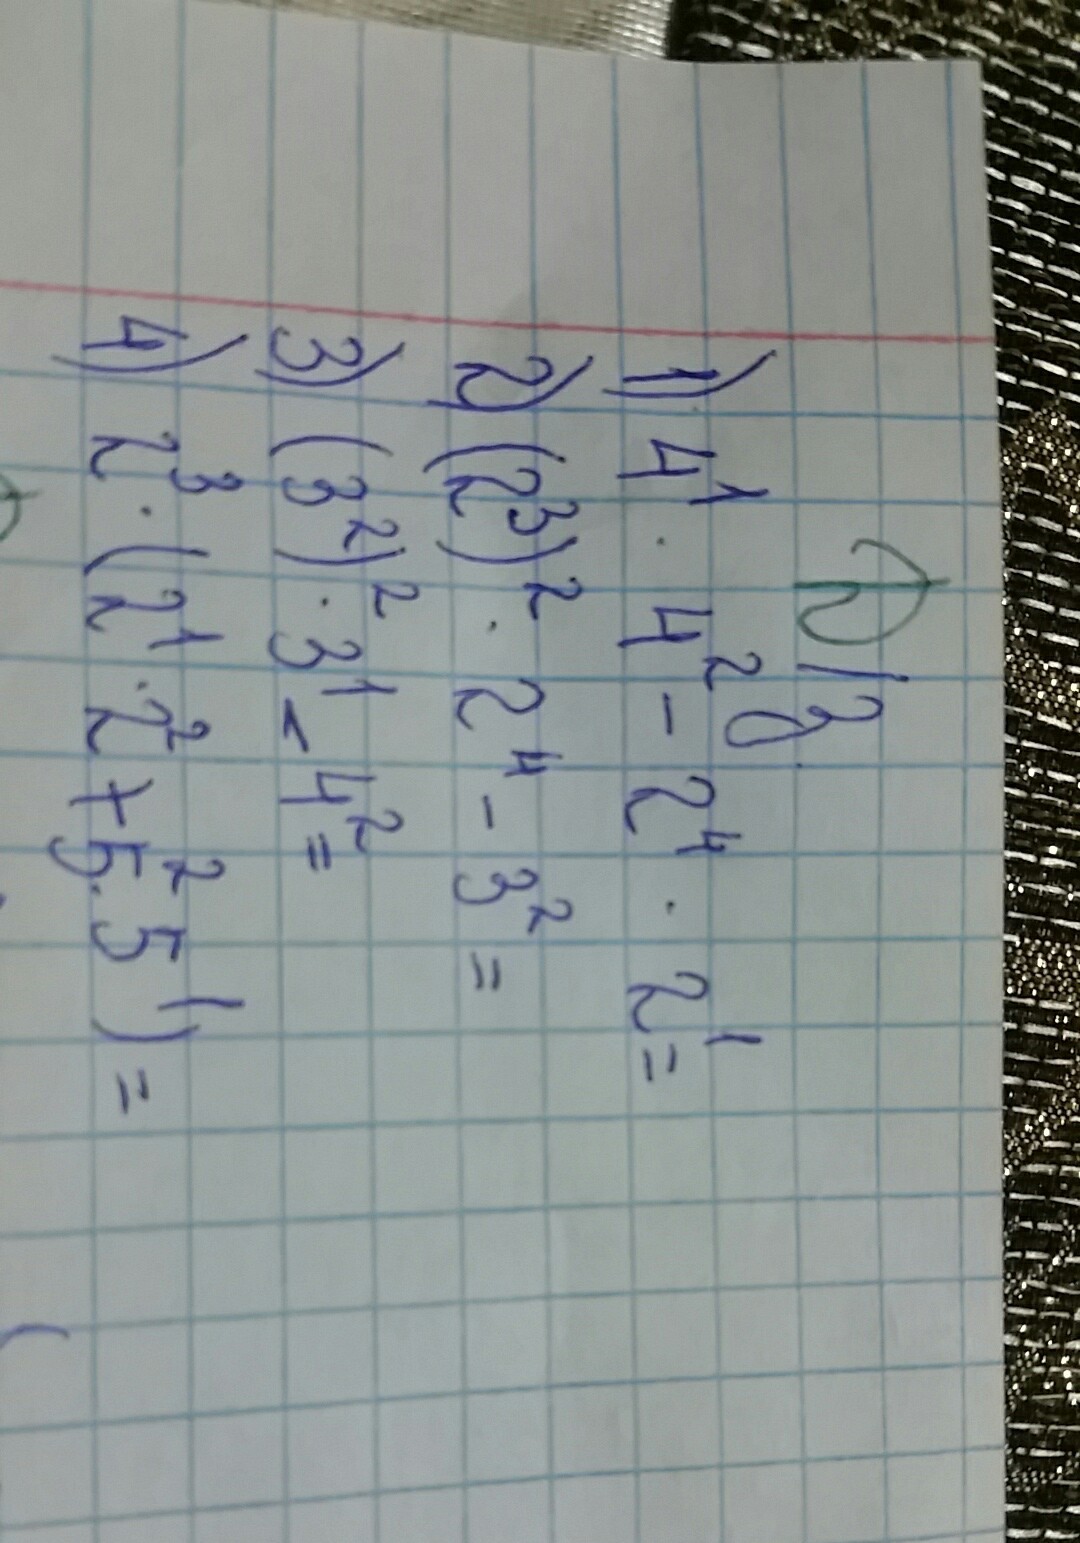 Д/з
1) 4¹ · 4² - 2⁴ · 2¹ =
2) (2³)² · 2⁴ - 3² =
3) (3²)² · 3¹ - 4² =
4) 2³ · (2¹ · 2² + 5² · 5¹) =